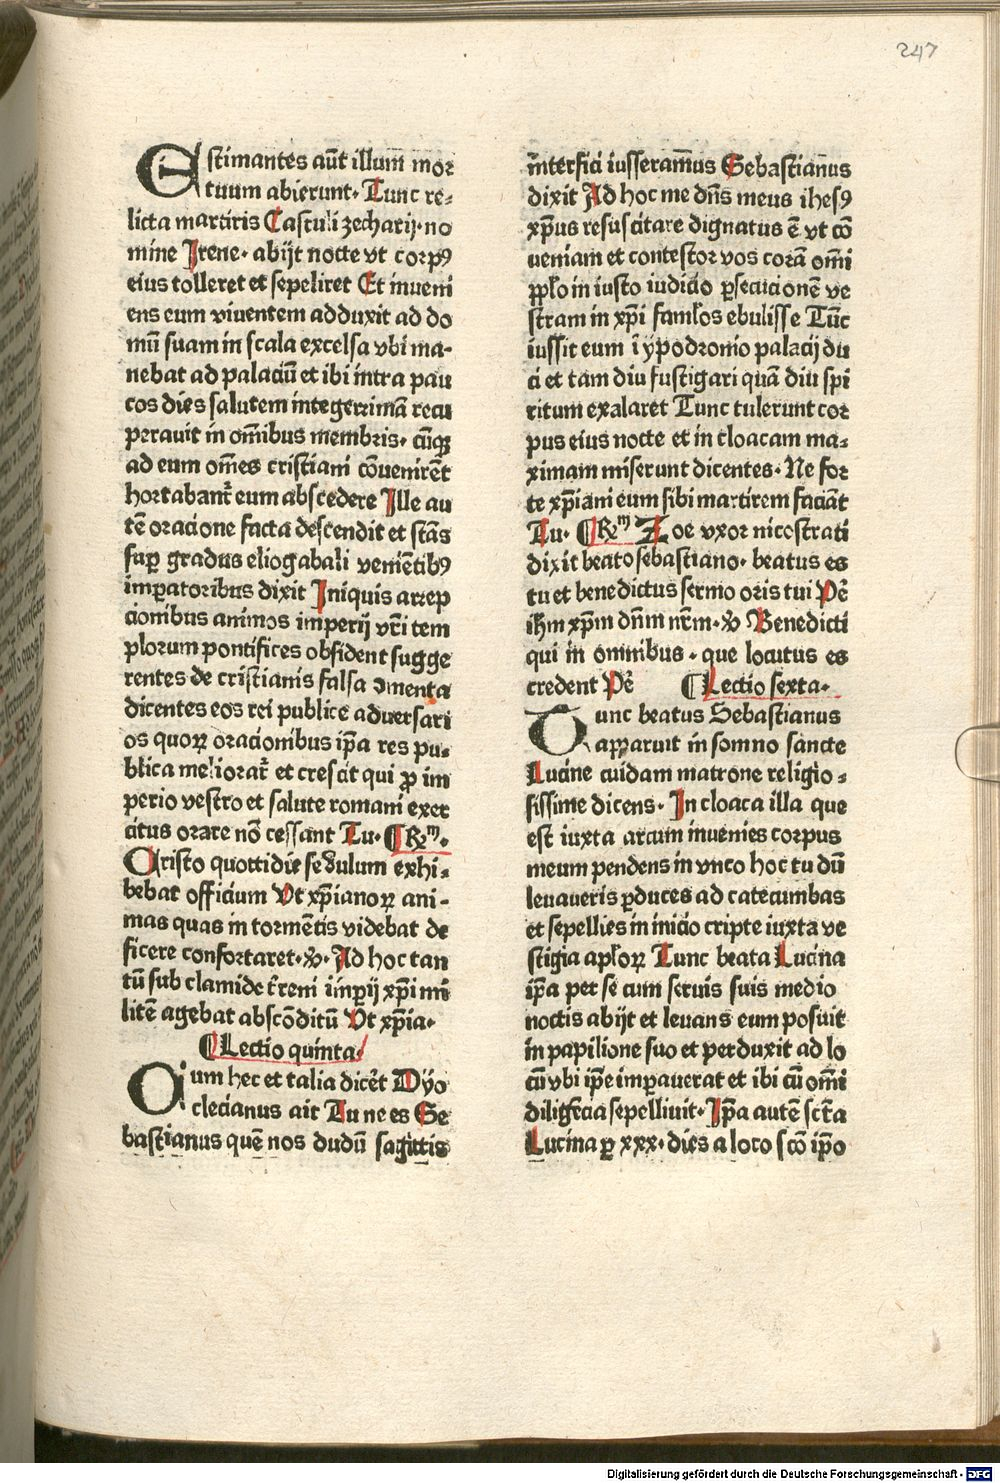 247
Estimantes aūt illum mor
tuum abierunt. Tunc re-
licta martiris Castuli zecharij. no
mine Irene. abijt nocte vt corpꝰ
eius tolleret et sepeliret Et inueni
ens eum viventem adduxit ad do
mū suam in scala excelsa vbi ma-
nebat ad palaciū et ibi intra pau
cos dies salutem integerrimā recu
perauit in om̄ibus membris. cūqꝫ
ad eum om̄es cristiani cōvenirēt
hortabant̄ eum abscedere Ille au
tē oracione facta descendit et stās
suꝑ gradus eliogabali veniētibꝰ
imꝑatoribus dixit Iniquis arrep
cionibus animos imperij vr̄i tem
plorum pontifices obsident sugge
rentes de cristianis falsa ↄmenta
dicentes eos rei publice aduersari
os quoꝝ oracionibus ip̄a res pu-
blica meliorat̄ et crescit qui ꝓ im
perio vestro et salute romani exer
citus orare nō cessant Tu. ¶ Rm̄.
Cristo quottidie sedulum exhi-
bebat officium Vt xp̄ianoꝝ ani-
mas quas in tormētis videbat de
ficere confortaret. ℣. Ad hoc tan
tū sub clamide t̄reni imꝑij xp̄i mi
litē agebat abscōditū Vt xp̄ia.
¶ Lectio quinta
Cum hec et talia dicēt Dyo
clecianus ait Tu ne es Se
bastianus quē nos dudū sagittis
interfici iusseram̄us Sebastian̄us
dixit Ad hoc me dn̄s meus ihesꝰ
xp̄us resuscitare dignatus ē vt cō
ueniam et contestor vos corā om̄i
pp̄lo in iusto iudicio ꝑsecucionē ve
stram in xp̄i famłos ebulisse Tūc
iussit eum ī ypodromio palacij du
ci et tam diu fustigari quā diu spi
ritum exalaret Tunc tulerunt cor
pus eius nocte et in cloacam ma-
ximam miserunt dicentes. Ne for
te xp̄iani eum sibi martirem faciāt
Tu. ¶ Rm̄ Zoe vxor nicostrati
dixit beato sebastiano. beatus es
tu et benedictus sermo oris tui Pē
ih̄m xp̄m dn̄m nr̄m. ℣ Benedicti
qui in omnibus. que locutus es
credent Pē ¶ Lectio sexta.
Tunc beatus Sebastianus
apparuit in somno sancte
Lucine cuidam matrone religio-
sissime dicens. In cloaca illa que
est iuxta arcum inuenies corpus
meum pendens in vnco hoc tu dū
leuaueris ꝑduces ad catecumbas
et sepellies in inicio cripte iuxta ve
stigia apłoꝝ Tunc beata Lucina
ip̄a per se cum seruis suis medio
noctis abijt et leuans eum posuit
in papilione suo et perduxit ad lo
cū vbi ip̄e imꝑauerat et ibi cū om̄i
diligēcia sepelliuit. Ip̄a autē sct̄a
Lucina ꝑ xxx. dies a loco scō ip̄o
Digitalisierung gefördert durch die Deutsche Forschungsgemeinschaft - DFG